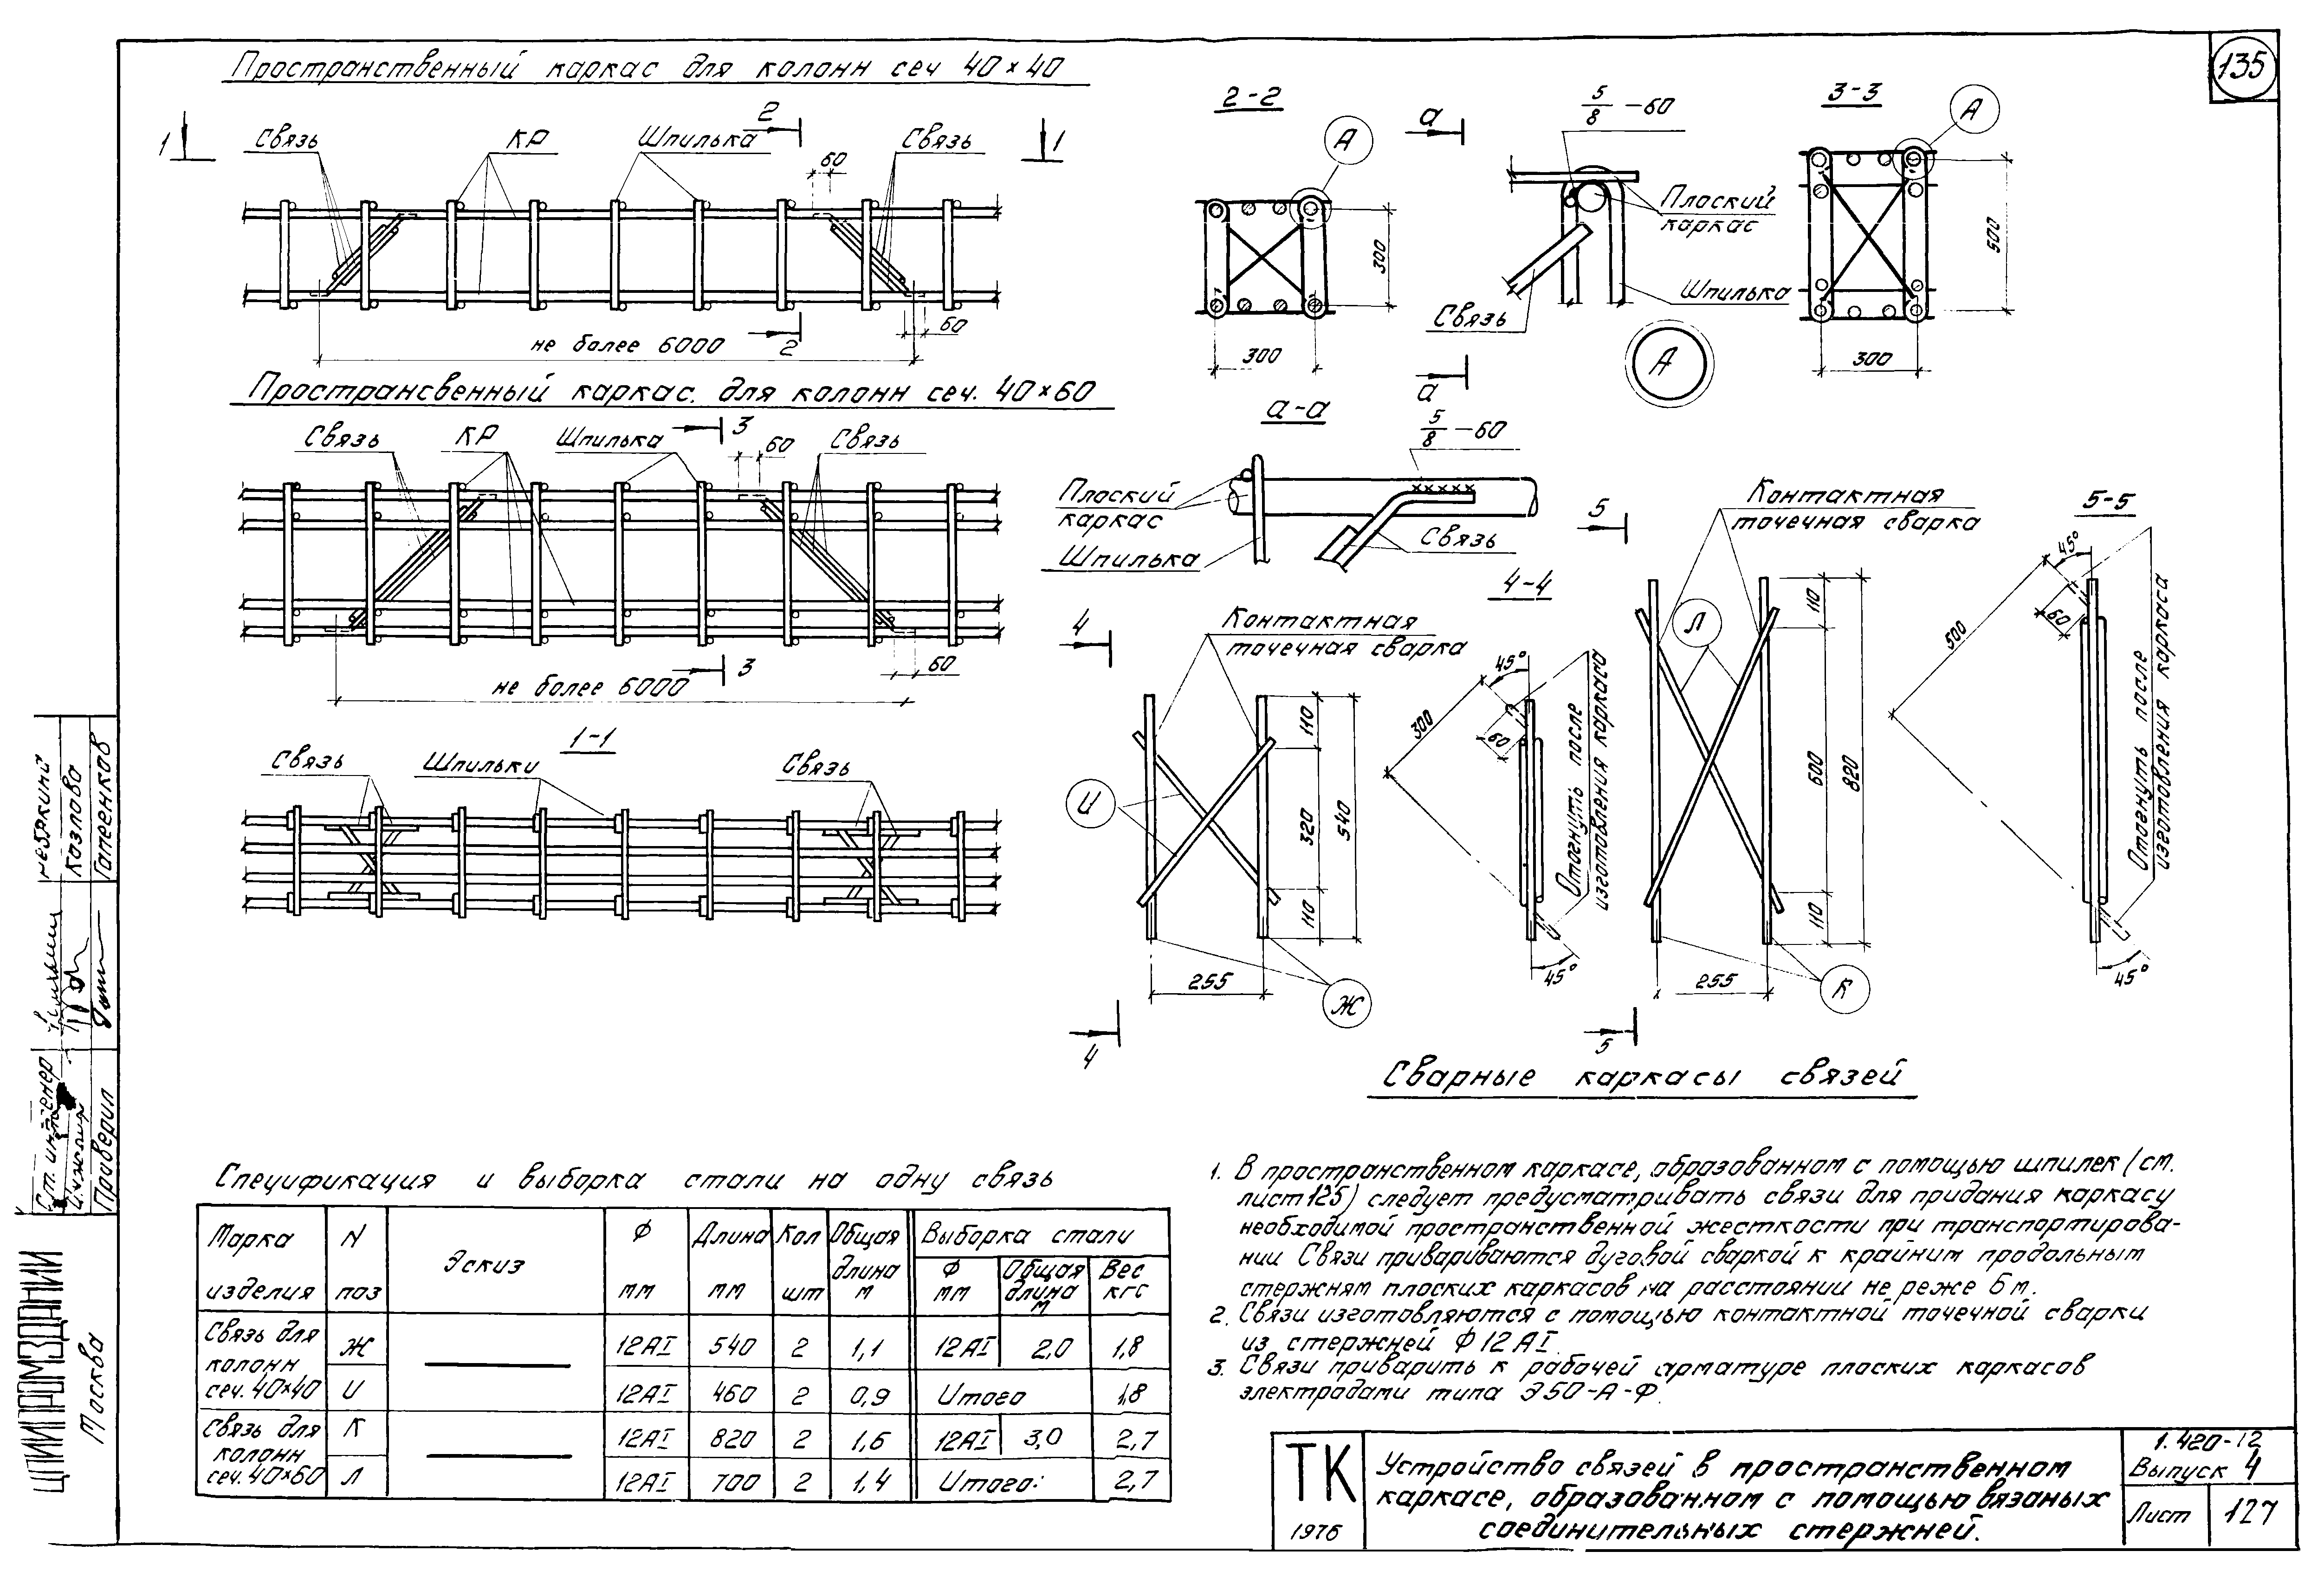 135
Пространственный каркас для колонн сеч 40×40
1
Связь
КР
Шпилька
2
60
Связь
1
не более 6000
2
60
Пространсвенный каркас. для колонн сеч. 40×60
Связь
КР
Шпилька
3
60
Связь
не более 6000
3
60
1-1
Связь
Шпильки
Связь
2-2
А
300
300
а
5/8 -60
Плоский
каркас
Шпилька
Связь
А
а
3-3
А
500
300
а-а
5/8 -60
Плоский
каркас
Шпилька
Связь
4-4
4
Контактная
точечная сварка
И
110
320
110
540
255
Ж
4
45°
300
60
Отогнуть после
изготовления каркаса
45°
5
Контактная
точечная сварка
Л
110
600
110
820
255
К
5
5-5
45°
500
60
Отогнуть после
изготовления каркаса
45°
Сварные каркасы связей
Спецификация и выборка стали на одну связь
Марка изделия N поз Эскиз Ф мм Длина мм Кол шт Общая длина м Выборка стали
Ф мм Общая длина м Вес кгс
Связь для колонн сеч. 40×40 Ж 12АI 540 2 1,1 12АI 2,0 1,8
И 12АI 460 2 0,9 Итого 1,8
Связь для колонн сеч. 40×60 К 12АI 820 2 1,6 12АI 3,0 2,7
Л 12АI 700 2 1,4 Итого: 2,7
1. В пространственном каркасе, образованном с помощью шпилек (см.
лист 125) следует предусматривать связи для придания каркасу
необходимой пространственной жесткости при транспортирова-
нии Связи привариваются дуговой сваркой к крайним продольным
стержням плоских каркасов на расстоянии не реже 6 м.
2. Связи изготовляются с помощью контактной точечной сварки
из стержней Ф 12 АI.
3. Связи приварить к рабочей арматуре плоских каркасов
электродами типа Э50-А-Ф.
ТК
1976
Устройство связей в пространственном
каркасе, образованном с помощью вязаных
соединительных стержней.
1.420-12
Выпуск 4
Лист 127
ЦНИИПРОМЗДАНИЙ
Москва
Ст. инженер
Проверил
Козлова
Гапеенков